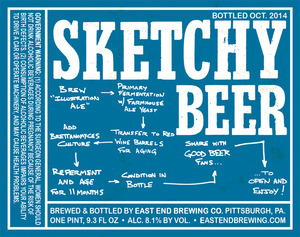 BOTTLED OCT. 2014
SKETCHY
BEER
BREW
"ILLUSTRATION
ALE"
PRIMARY
FERMENTATION
W/ FARMHOUSE
ALE YEAST
TRANSFER TO RED
WINE BARRELS
FOR AGING
ADD
BRETTANOMYCES
CULTURE
REFERMENT
AND AGE
FOR 11 MONTHS
CONDITION IN
BOTTLE
SHARE WITH
GOOD BEER
FANS...
...TO
OPEN AND
ENJOY!
BREWED & BOTTLED BY EAST END BREWING CO. PITTSBURGH, PA.
ONE PINT, 9.3 FL OZ. • ALC. 8.1% BY VOL. • EASTENDBREWING.COM
GOVERNMENT WARNING: (1) ACCORDING TO THE SURGEON GENERAL, WOMEN SHOULD
NOT DRINK ALCOHOLIC BEVERAGES DURING PREGNANCY BECAUSE OF THE RISK OF
BIRTH DEFECTS. (2) CONSUMPTION OF ALCOHOLIC BEVERAGES IMPAIRS YOUR ABILITY
TO DRIVE A CAR OR OPERATE MACHINERY, AND MAY CAUSE HEALTH PROBLEMS.